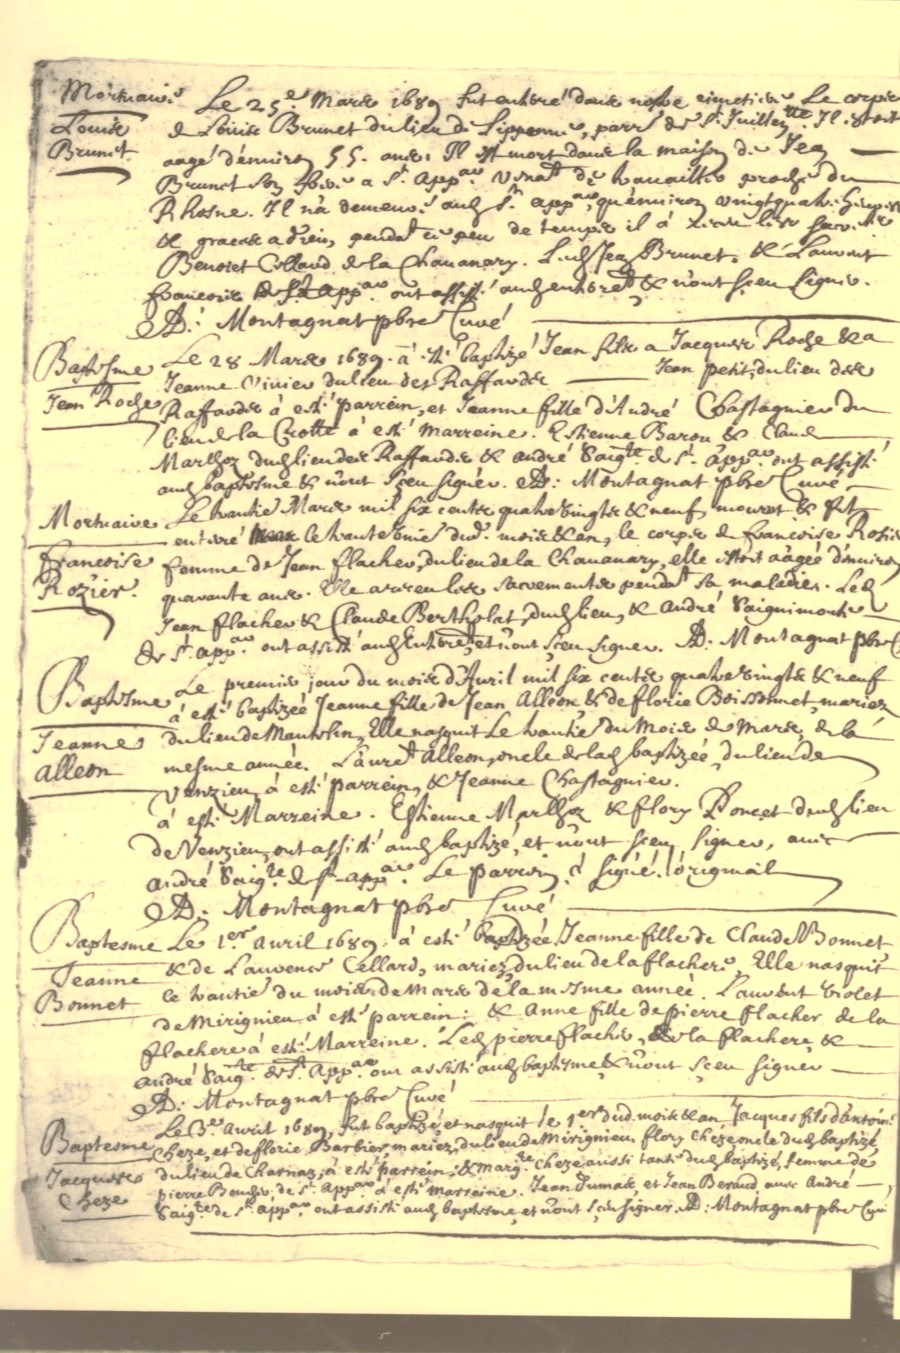 Mortuaire
Louise
Brunet
Le 25e Mars 1689 fut enterré dans nostre cimetiere Le corps
de Louis Brunet du lieu de Lippenne, parr. de St Juillette. Il estoit
aagé d'environ 55. ans. Il est mort dans la maison de Jean
Brunet son frere a St appar venat de travailler proche du
Rhosne. Il n'a demeuré aud. St appar qu'environ vingtquatre heures
& graces a Dieu, pendat ce peu de temps il à receu les sacrets
Benoict Collaud de la Chavanary. Led. Jean Brunet & Laurent
francois de St appar ont assisté aud. enterret & n'ont sceu signer.
AD: Montagnat pbre Curé
Baptesme
Jean Roche
Le 28 Mars 1689 à esté baptizé Jean fils a Jacques Roche & a
Jeanne Vivier du lieu des Raffardes Jean petit, du lieu des
Raffardes à esté parrein, et Jeanne fille d'André Chastagnier du
lieu de la Crotte à esté marreine. Estienne Barou & Claude
Marthoz dud. lieu des Raffards & andré Saigte de St appar ont assisté
aud. baptesme & n'ont sceu signér. AD: Montagnat pbre Curé
Mortuaire
francoise
Rozier.
Le trantie Mars mil six cents quatre vingts & neuf mourut & fut
enterré le trante unie dud. mois & an, le corps de francoise Rosier
femme de Jean flacher, du lieu de la Chavanary, elle estoit aàgée d'environ
quarante ans. Elle a receu les sacrements pendat sa maladie. Led.
Jean flacher & Claude Bertholat dud. lieu, & André Saignimorte
de St appar ont assisté aud. Enterret, et n'ont sceu signer. AD: Montagnat pbre C
Baptesme
Jeanne
alleon
Le premier jour du mois d'Avril mil six cents quatre vingts & neuf
à esté baptizée Jeanne fille de Jean Alleon, & de florie Boissonnet, mariez
du lieu de Mantelin, Elle nasquit Le trantie du Mois de Mars, de la
mesme année. Lauret Alleon, oncle de lad. baptizée, du lieu de
Venzieu, à esté parrein, & Jeanne Chastagnier
à esté Marreine. Estienne Marthoz & flory Poncet dud. lieu
de Venzieu, ont assisté aud. baptizé, et n'ont sceu signer, avec
andré Saigte de St appar. Le parrein à signé l'original
AD: Montagnat pbre Curé
Baptesme
Jeanne
Bonnet
Le 1er avril 1689 à esté baptizée Jeanne fille de Claude Bonnet
& de Laurence Cellard, mariez, du lieu de la flachere, Elle nasquit
le trantie du mois de Mars de la mesme année. Laurent Violet
de Mirignieu à esté parrein: & Anne fille de pierre flacher de la
flachere à esté Marreine. Led. pierre flacher, de la flachere, &
André Saigte de St Appar ont assisté aud. baptesme & n'ont sceu signer
AD: Montagnat pbre Curé
Baptesme
Jacques
Cheze
Le 3e Avril 1689, fut baptizé et nasquit le 1er dud. mois & an, Jacques fils d'Antoine
Cheze, et de florie Barbier, mariez, du lieu de Mirignieu, flory Cheze oncle dud. baptizé,
du lieu de Charnaz, à esté parrein; & Margte Cheze aussi tante dud. baptizé, femme de
pierre Boucher, de St Appar à esté marreine. Jean Jumat, et Jean Beraud avec André
Saigte de St appar ont assisté aud. baptesme, et n'ont sceu signer. AD: Montagnat pbre Curé